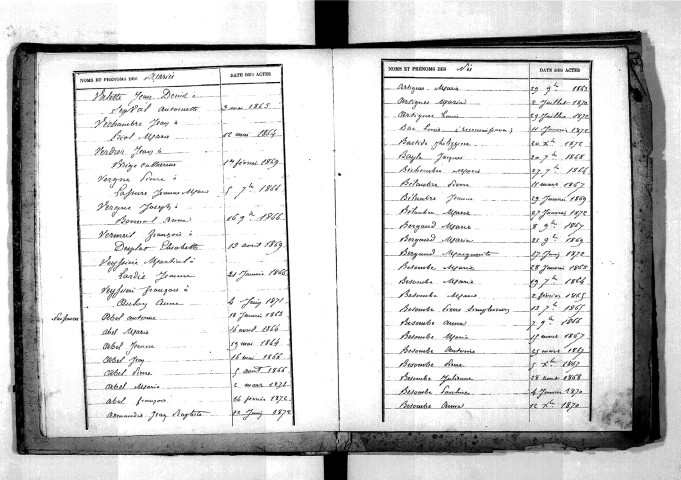 NOMS ET PRÉNOMS DES Mariés DATE DES ACTES
Valette Jean Denis à
Antoinette 3 mai 1865
Vechambre Jean à
Marie 12 mai 1864
Verdier Jean à
Catherine 1er février 1869
Vergne Pierre à
Jeanne Marie 5 7bre 1866
Vergne Joseph à
Bonnet Anna 16 9bre 1866
Vermeil François à
Desplat Elisabeth 13 avril 1869
à
Lardié Jeanne 21 Janvier 1866
François à
Anne 4 Juin 1871
Naissances Abel Antoine 18 Janvier 1863
Abel Marie 16 avril 1864
Abel Jeanne 19 mai 1864
Abel Jean 16 mai 1866
Abel Pierre 5 août 1866
Abel Marie 2 mars 1872
Abel François 14 février 1872
Armandie Jean Baptiste 12 Juin 1872
NOMS ET PRÉNOMS DES Nés DATE DES ACTES
Artigues Marie 29 9bre 1863
Artigues Maria 2 Juillet 1870
Artigues Louis 29 Juillet 1872
Louis 11 Janvier 1872
Bastide Philippine 20 Xbre 1872
Bayle Jacques 20 7bre 1868
Marie 27 7bre 1866
Bélaubre Pierre 11 mars 1867
Bélaubre Jeanne 29 Janvier 1869
Bélaubre Marie 27 Janvier 1872
Bergaud Marie 8 9bre 1867
Bergaud Maria 21 9bre 1869
Bergaud Marguerite 27 Juin 1872
Besombe Marie 28 Janvier 1863
Besombe Marie 19 7bre 1864
Besombe Marie 2 février 1865
Besombe Pierre 13 7bre 1865
Besombe Anna 7 9bre 1866
Besombe Marie 15 mars 1867
Besombe Antoine 25 mars 1867
Besombe Pierre 5 Xbre 1867
Besombe Julienne 28 août 1868
Besombe Pauline 4 Janvier 1870
Besombe Anna 12 Xbre 1870